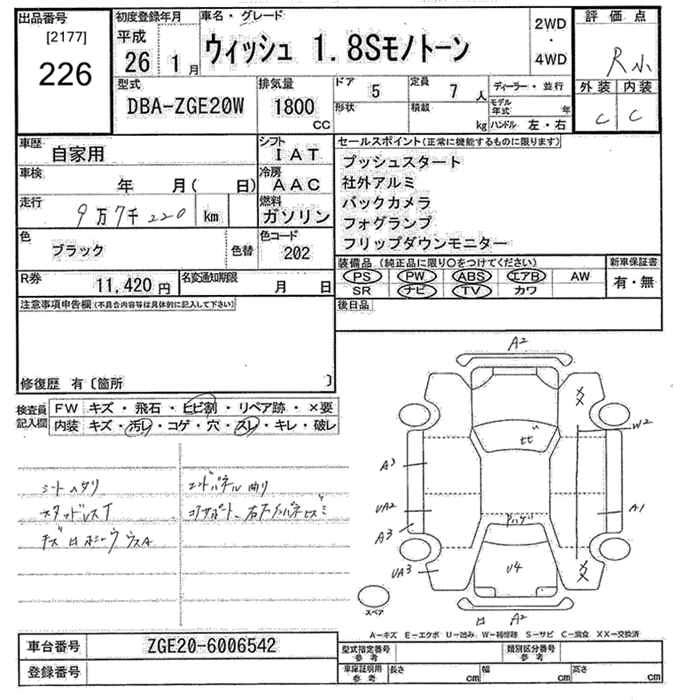 出品番号 [2177] 226
初度登録年月 平成 26 1月
車名・グレード ウィッシュ 1.8Sモノトーン
2WD ・ 4WD
評価点 R
外装 内装
C C
型式 DBA-ZGE20W
排気量 1800 CC
ドア 5
定員 7 人
ディーラー・並行
形状 積載 kg
モデル年式 年
ハンドル 左・右
車歴 自家用
シフト IAT
車検 年 月( 日)
冷房 AAC
走行 9万7千220 km
燃料 ガソリン
色 ブラック 色替
色コード 202
R券 11,420 円
名変通知期限 月 日
セールスポイント(正常に機能するものに限ります)
プッシュスタート
社外アルミ
バックカメラ
フォグランプ
フリップダウンモニター
装備品 (純正品に限り○をつけてください)
PS PW ABS エアB AW
SR ナビ TV カワ
新車保証書 有・無
後日品
注意事項申告欄(不具合内容等は具体的に記入して下さい)
修復歴 有〔箇所 〕
検査員記入欄
FW キズ・飛石・ヒビ割・リペア跡・×要
内装 キズ・汚レ・コゲ・穴・スレ・キレ・破レ
シートヘタリ
エンドパネル曲り
スタッドレスT
A2
W2
A3
A1
UA2
A3
UA3
U4
A2
スペア
A-キズ E-エクボ U-凹み W-補修跡 S-サビ C-腐食 XX-交換済
車台番号 ZGE20-6006542
登録番号
型式指定番号 参考
類別区分番号 参考
車庫証明用 参考 長さ cm 幅 cm 高さ cm